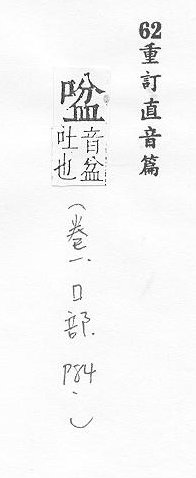 62重訂直音篇
音盆
吐也
(卷一.口部.P84.)